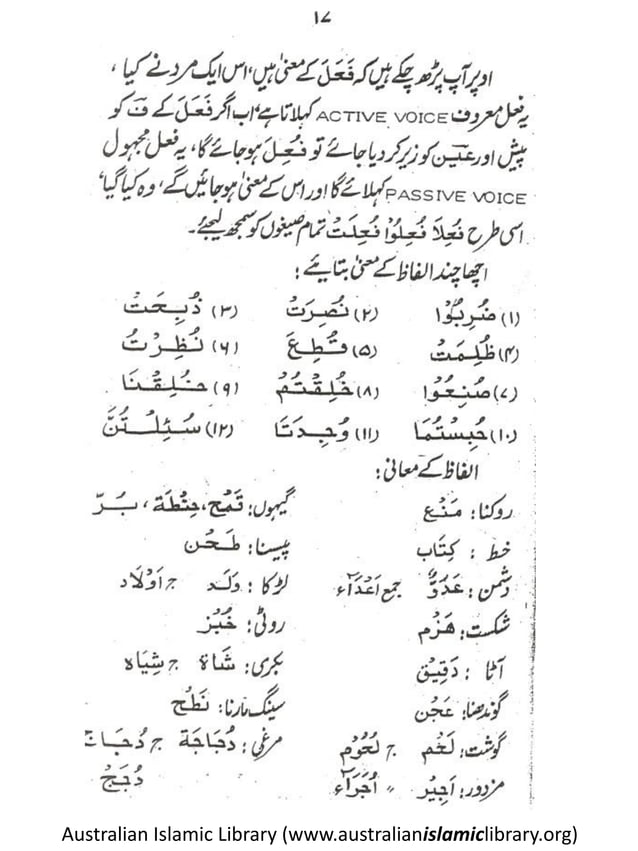 ۱۷
اوپر آپ پڑھ چکے ہیں کہ فَعَلَ کے معنیٰ ہیں ’اس ایک مرد نے کیا‘،
یہ فعل معروف ACTIVE VOICE کہلاتا ہے‘ اب اگر فَعَلَ کے فَ کو
پیش اور عین کو زیر کر دیا جائے تو فُعِلَ ہو جائے گا، یہ فعل مجہول
PASSIVE VOICE کہلائے گا اور اس کے معنیٰ ہو جائیں گے، ’وہ کیا گیا‘
اسی طرح فُعِلَا فُعِلُوْا فُعِلَتْ تمام صیغوں کو سمجھ لیجئے۔
اچھا چند الفاظ کے معنیٰ بتایئے:
(۱) ضُرِبُوْا (۲) نُصِرَتْ (۳) ذُبِحَتْ
(۴) ظُلِمَتْ (۵) قُطِعَ (۶) نُظِرْتُ
(۷) صُنِعُوْا (۸) خُلِقْتُمْ (۹) خُلِقْنَا
(۱۰) حُبِسْتُمَا (۱۱) وُجِدَتَا (۱۲) سُئِلْتُنَّ
الفاظ کے معانی:
روکنا: مَنْع گیہوں: قَمْح، حِنْطَة، بُرّ
خط: كِتَاب پیسنا: طَحْن
دشمن: عَدُوّ جمع اَعْدَآء لڑکا: وَلَد ج اَوْلَاد
شکست: هَزْم روٹی: خُبْز
آٹا: دَقِيْق بکری: شَاة ج شِيَاه
گوندھنا: عَجْن سینگ مارنا: نَطْح
گوشت: لَحْم ج لُحُوْم مرغی: دُجَاجَة ج دُجَاجَات
مزدور: اَجِيْر " اُجَرَآء دُجُجْ
Australian Islamic Library (www.australianislamiclibrary.org)